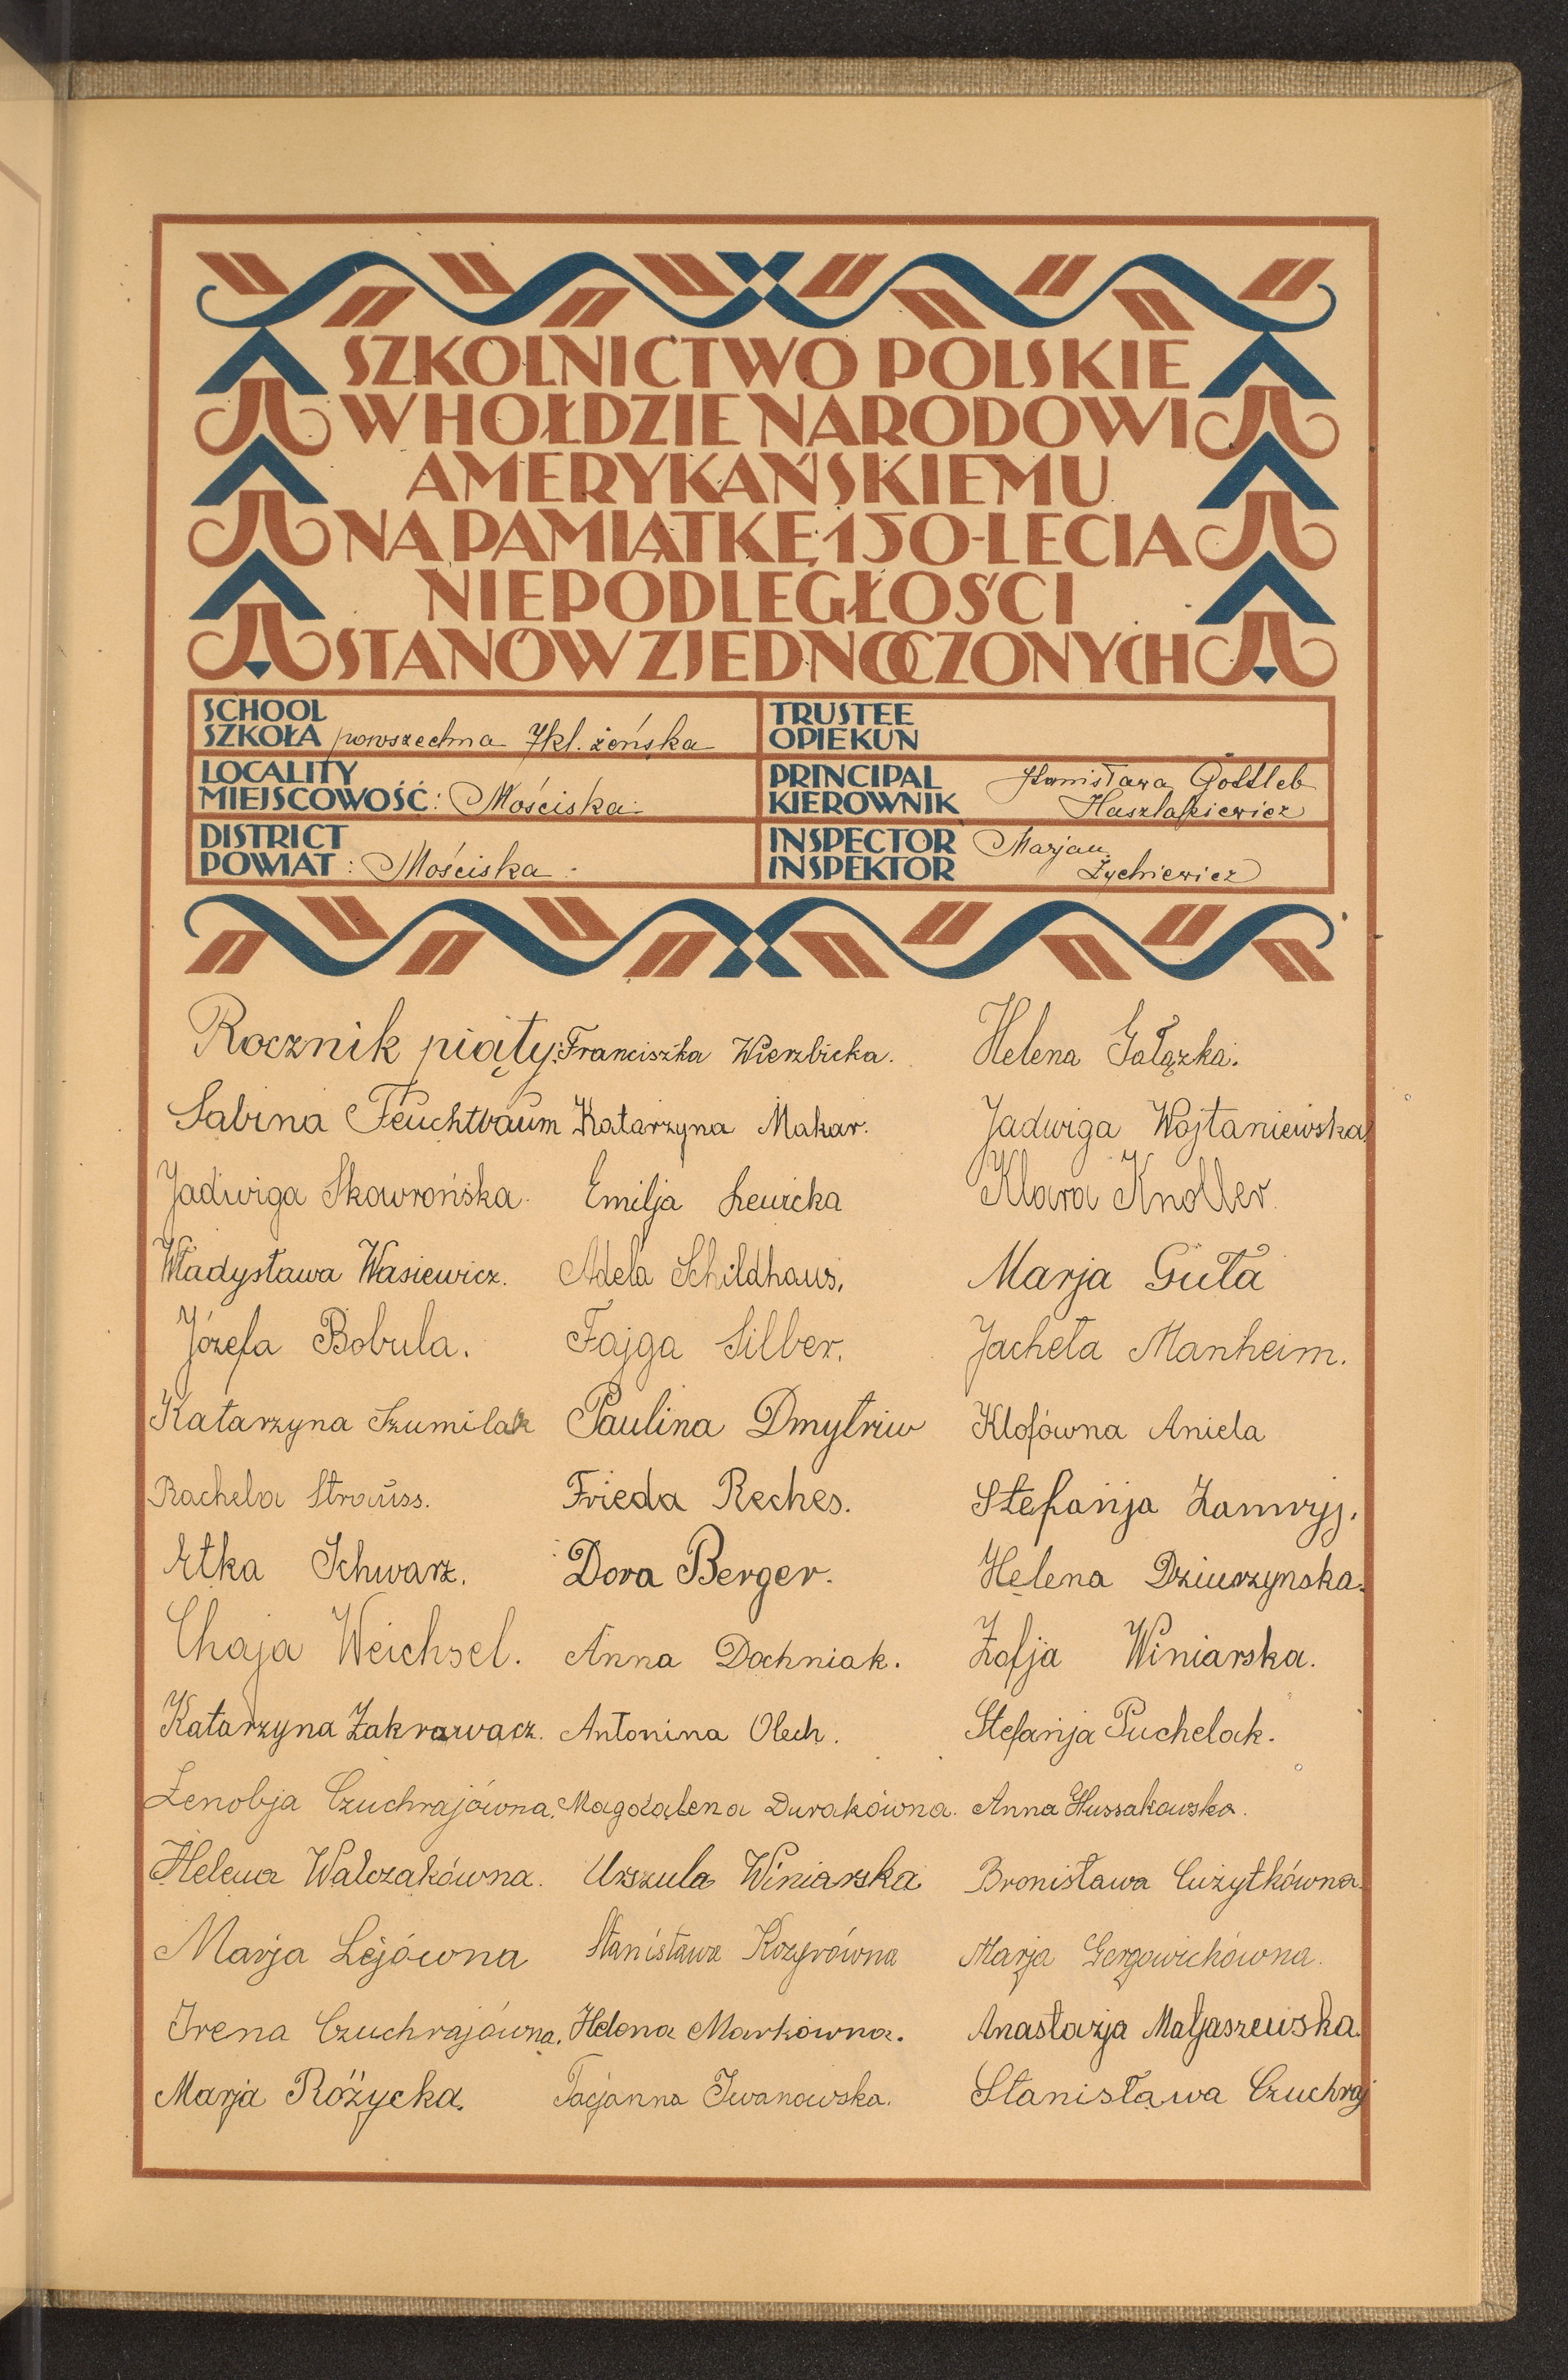 SZKOLNICTWO POLSKIE
W HOŁDZIE NARODOWI
AMERYKAŃSKIEMU
NA PAMIĄTKĘ 150-LECIA
NIEPODLEGŁOŚCI
STANÓW ZJEDNOCZONYCH
SCHOOL
SZKOŁA powszechna 7kl. żeńska
LOCALITY
MIEJSCOWOŚĆ: Mościska
DISTRICT
POWIAT: Mościska
TRUSTEE
OPIEKUN
PRINCIPAL Stanisława Gottleb
KIEROWNIK Haszlakiewicz
INSPECTOR Marjan
INSPEKTOR Żychiewicz
Rocznik piąty:
Sabina Feuchtbaum
Jadwiga Skowrońska.
Władysława Wasiewicz.
Józefa Bobula.
Katarzyna Szumilak
Rachela Strauss.
Etka Schwarz.
Chaja Weichsel.
Katarzyna Zakrawacz.
Zenobja Czuchrajówna.
Helena Walczakówna.
Marja Lejówna
Irena Czuchrajówna.
Marja Różycka.
Franciszka Wierzbicka.
Katarzyna Makar.
Emilja Lewicka
Adela Schildhaus.
Fajga Silber.
Paulina Dmytriw
Frieda Reches.
Dora Berger.
Anna Dochniak.
Antonina Olech.
Magdalena Durakówna.
Urszula Winiarska
Stanisława Kozyrówna
Helena Markówna.
Tacjanna Iwanowska.
Helena Gałązka.
Jadwiga Wojtaniewska
Klara Knoller.
Marja Guła
Jacheta Manheim.
Klofówna Aniela
Stefanja
Helena Dziurzynska.
Zofja Winiarska.
Stefanja Puchelak.
Anna Hussakowska.
Bronisława Cużytkówna.
Marja
Anastazja Matjaszewska.
Stanisława Czuchraj